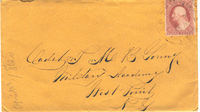 Cadet T M R Young
Military Academy
West Point
N.Y.